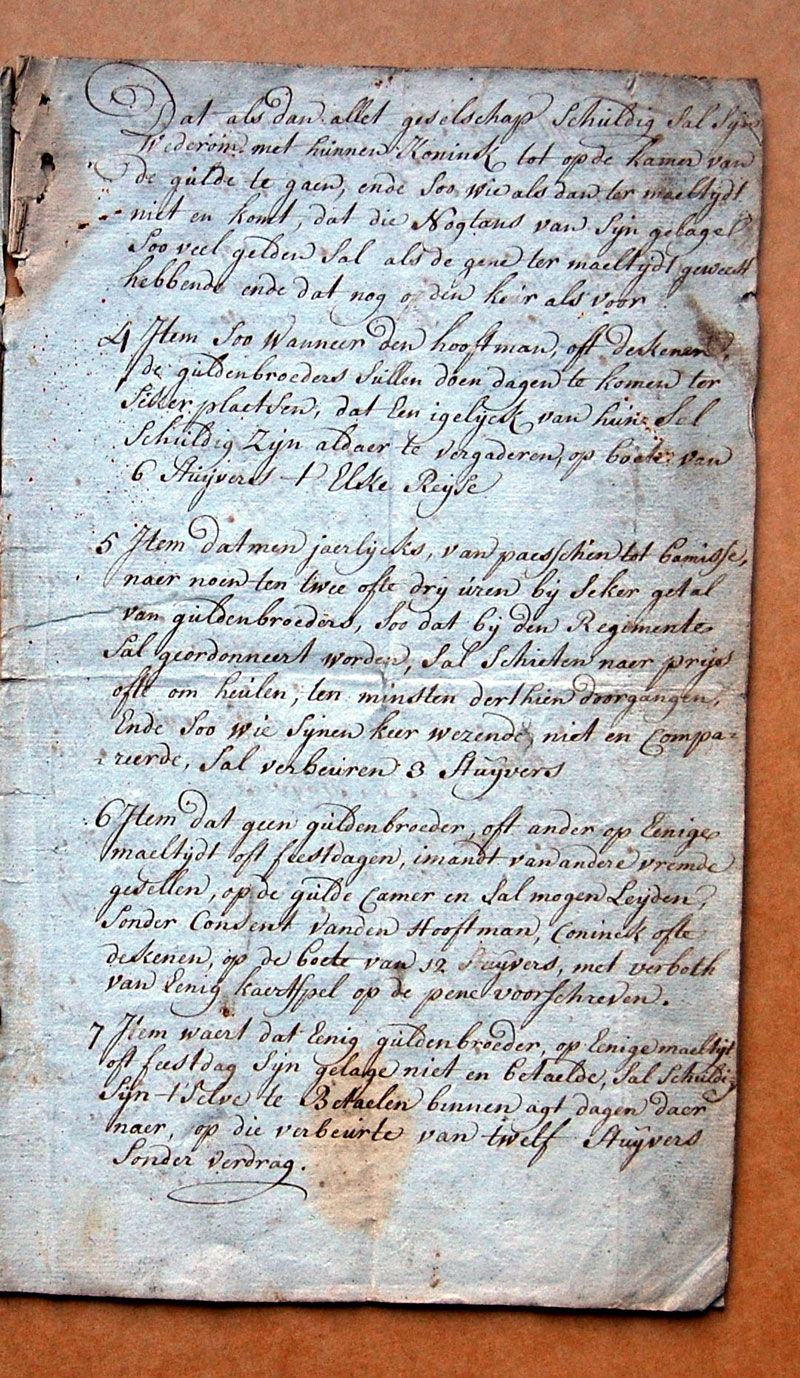 Dat als dan allet geselschap schuldig sal sijn
Wederom met hunnen Konink tot op de kamer van
de gulde te gaen, ende soo wie als dan ter maeltydt
niet en komt, dat die Nogtans van sijn gelagel
soo veel gelden sal als de gene ter maeltydt geweest
hebbende ende dat nog op den keir als voor
4 Item soo wanneer den hooftman, oft deskenen,
de guldenbroeders sullen doen dagen te komen ter
seker plaetsen, dat Een igelyck van hun sel
schuldig Zijn aldaer te vergaderen, op boete van
6 stuyvers t' Elke Reyse
5 Item datmen jaerlycks, van paesschen tot bamisse,
naer noen ten twee ofte drij uren bij seker getal
van guldenbroeders, soo dat bij den Regemente
sal geordonneert worden, sal schieten naer prijs
ofte om heulen, ten minsten derthien doorgangen,
Ende soo wie sijnen keer wezende, niet en Compa-
reerde, sal verbeuren 3 stuyvers
6 Item dat geen guldenbroeder, oft ander op Eenige
maeltijdt oft feestdagen, imandt van andere vremde
gesellen, op de gulde Camer en sal mogen Leyden,
sonder Consent vanden Hooftman, Coninck ofte
deskenen, op de boete van 12 stuyvers, met verboth
van Eenig kaertspel op de pene voorschreven.
7 Item waert dat Eenig guldenbroeder, op Eenige maeltyt
oft feestdag sijn gelage niet en betaelde, sal schuldig
sijn t'selve te Betaelen binnen agt dagen daer
naer, op die verbeurte van twelf stuyvers
sonder verdrag.